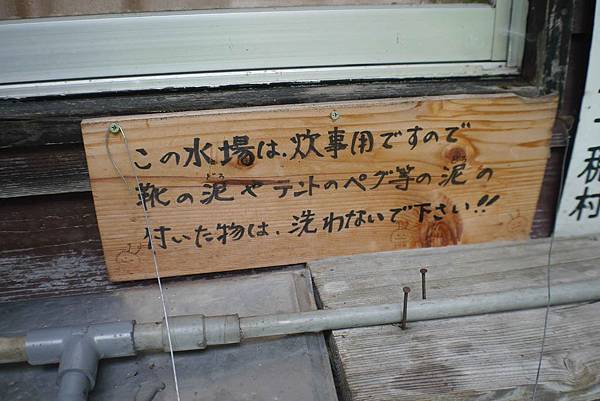 この水場は、炊事用ですので
靴の泥やテントのペグ等の泥の
付いた物は、洗わないで下さい!!
村